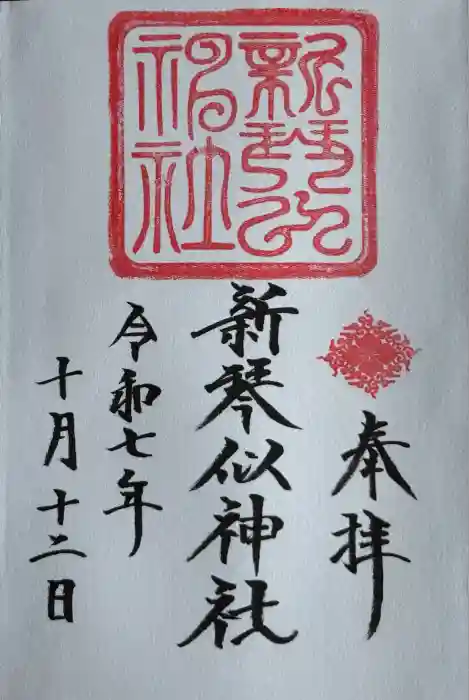 新琴似神社
奉拝
新琴似神社
令和七年
十月十二日